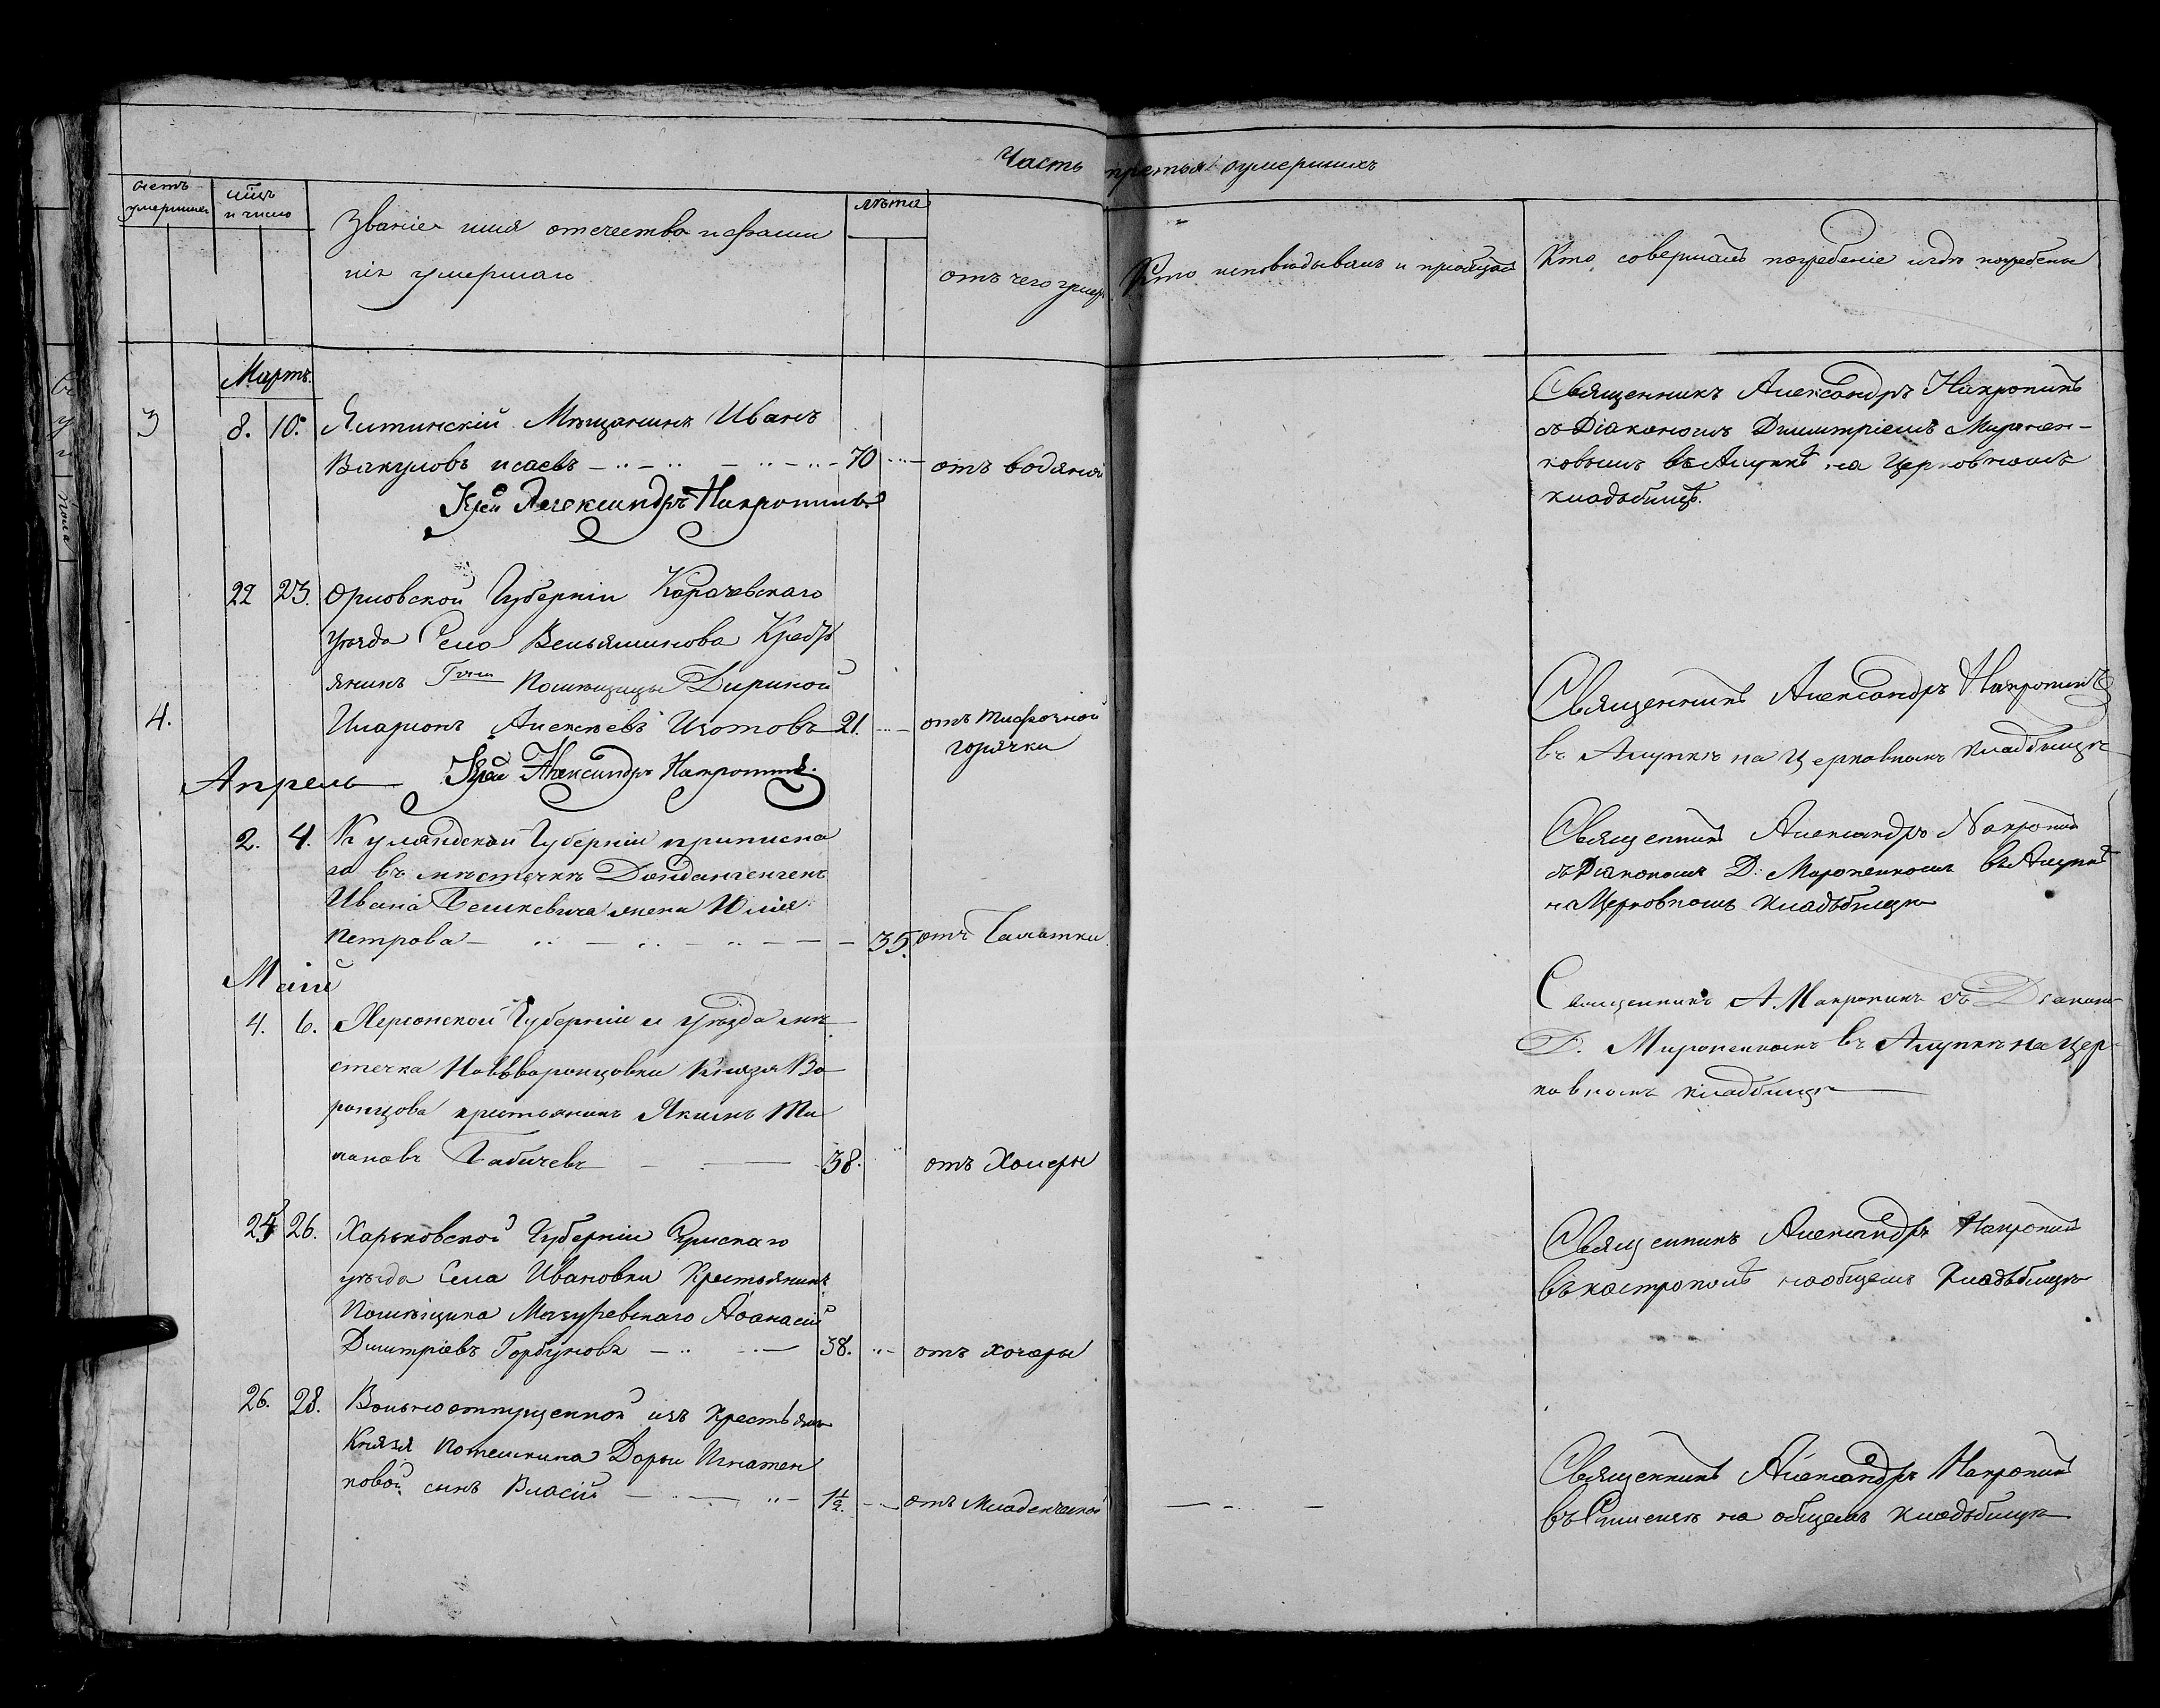 Часть третья о умершихъ
Счетъ умершихъ
м͠цъ и число
Званіе имя отечество и фамилія умершаго
лѣта
отъ чего умеръ
Кто исповѣдывалъ и пріобщалъ
Кто совершалъ погребеніе и гдѣ погребены
Мартъ.
3 8. 10. Ялтинскій Мѣщанинъ Иванъ
Вакуловъ Исаевъ 70 отъ водяной
Іерей Александръ Накропинъ
Священникъ Александръ Накропинъ
съ Діакономъ Димитріемъ Миронен-
ковымъ въ Алупкѣ на Церковномъ
кладбищѣ.
22 23. Орловской Губерніи Карачевскаго
уѣзда Села Вельяминова Крестья
4. янинъ Г-жи Помѣщицы Дириной
Иларіонъ Алексѣевъ Изотовъ 21. отъ тифозной
горячки
Іерей Александръ Накропинъ.
Священникъ Александръ Накропинъ
въ Алупкѣ на Церковномъ кладбищѣ
Апрель
2. 4. Курляндской Губерніи приписна
го въ мѣстечкѣ Дондангенгенъ
Ивана жена Юлія
Петрова 35. отъ Чахотки
Священникъ Александръ Накропинъ
съ Діакономъ Д. Мироненкомъ въ Алупкѣ
на Церковномъ кладьбищѣ
Маій
4. 6. Херсонской Губерніи и уѣзда мѣ
стечка Нововоронцовки Князя Во
ронцова крестьянинъ Якимъ Ти
Бабичевъ 38. отъ Холеры
Священникъ А. Накропинъ съ Діакономъ
Д. Мироненкомъ въ Алупкѣ на Цер
ковномъ кладбищѣ
26. Харьковской Губерніи Сумскаго
уѣзда Села Ивановки Крестьянинъ
Помѣщика Мазуревскаго Аѳанасій
Димитріевъ Горбуновъ 38. отъ холеры
Священникъ Александръ Накропинъ
въ Кастрополѣ на общемъ Кладьбищѣ
26. 28. Вольноотпущенной изъ Крестьянъ
Князя Потемкина Дарьи Игнатен
ковой сынъ Власій 1½. отъ Младенческой
Священникъ Александръ Накропинъ
въ Симеизѣ на общемъ кладьбищѣ